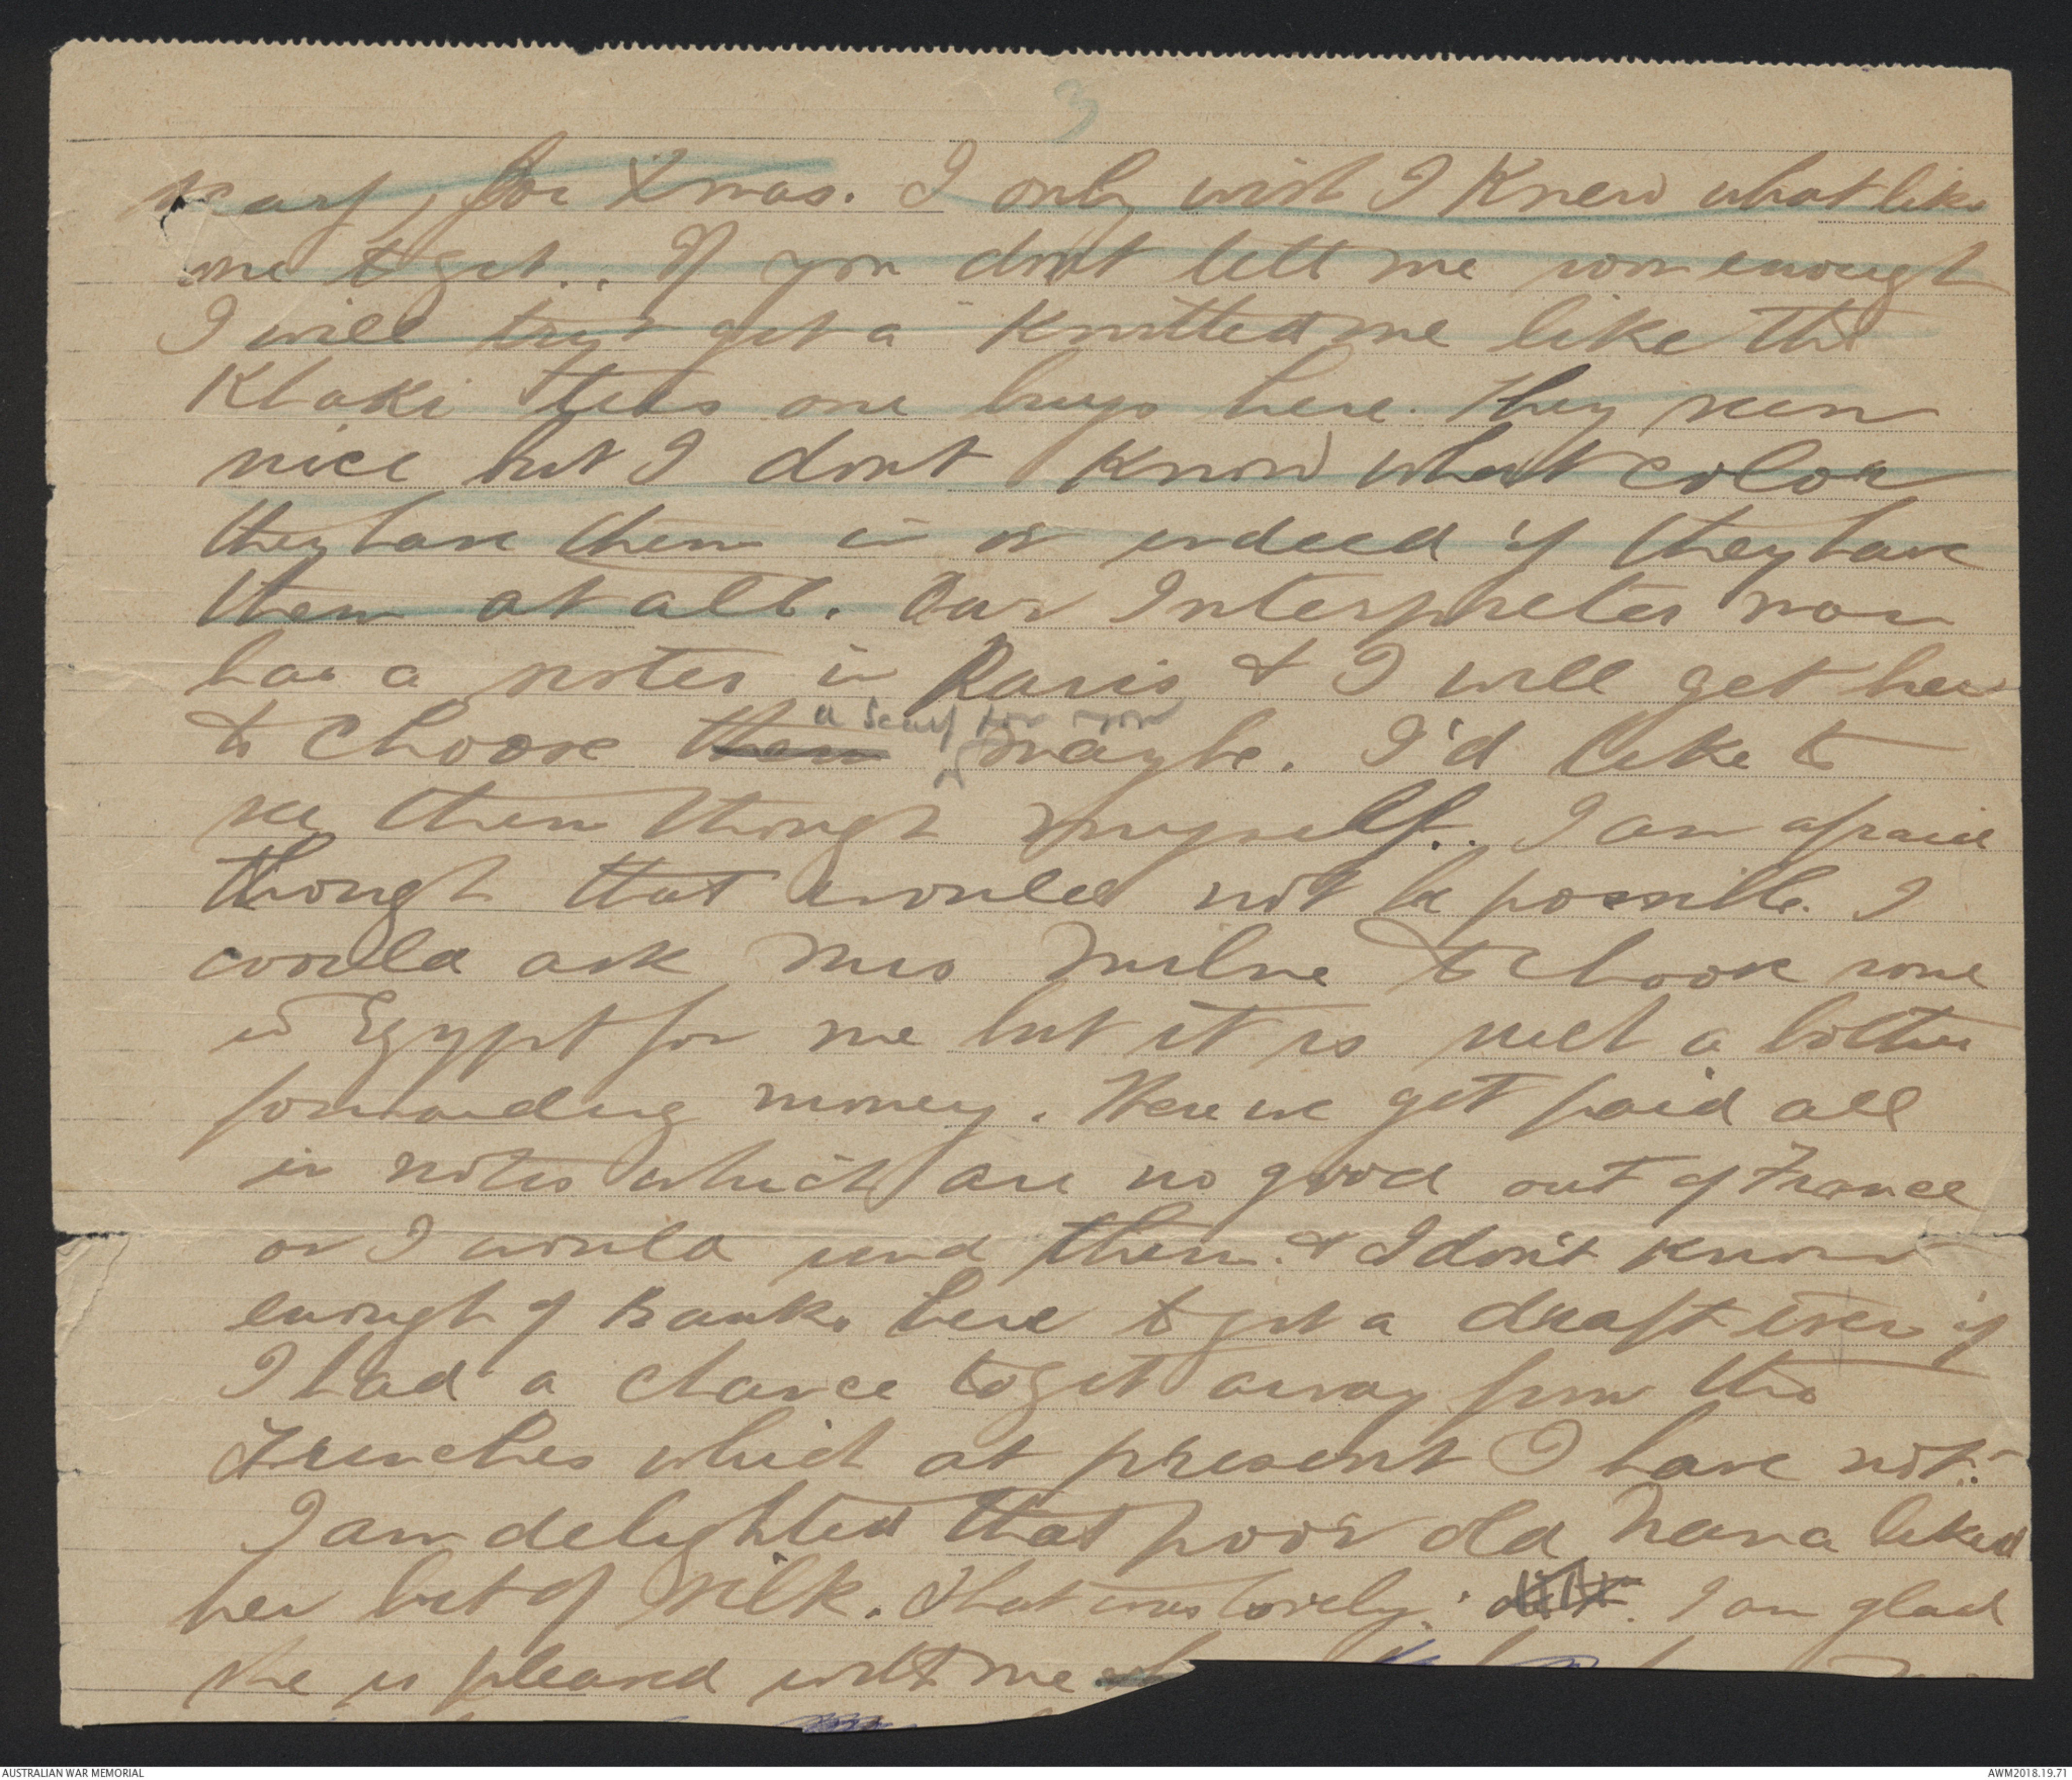 3
scarf, for Xmas. I only wish I knew what like
one to get.. If you dont tell me soon enough
I will try & get a knitted one like the
Khaki ones one buys here. They seem
nice but I dont know what color
they have them in or indeed if they have
them at all. Our Interpreter now
has a sister in Paris & I will get her
a scarf for you
to choose them maybe. I'd like to
see them though myself.. I am afraid
though that would not be possible. I
could ask Mrs Milne to choose some
in Egypt for me but it is such a bother
forwarding money. Here we get paid all
in notes which are no good out of France
or I would send them. & I don't know
enough of Banks here to get a draft even if
I had a chance to get away from the
Trenches which at present I have not.
I am delighted that poor old Nana liked
her bit of silk. That was lovely. I am glad
she is pleased with me
AUSTRALIAN WAR MEMORIAL
AWM2018.19.71